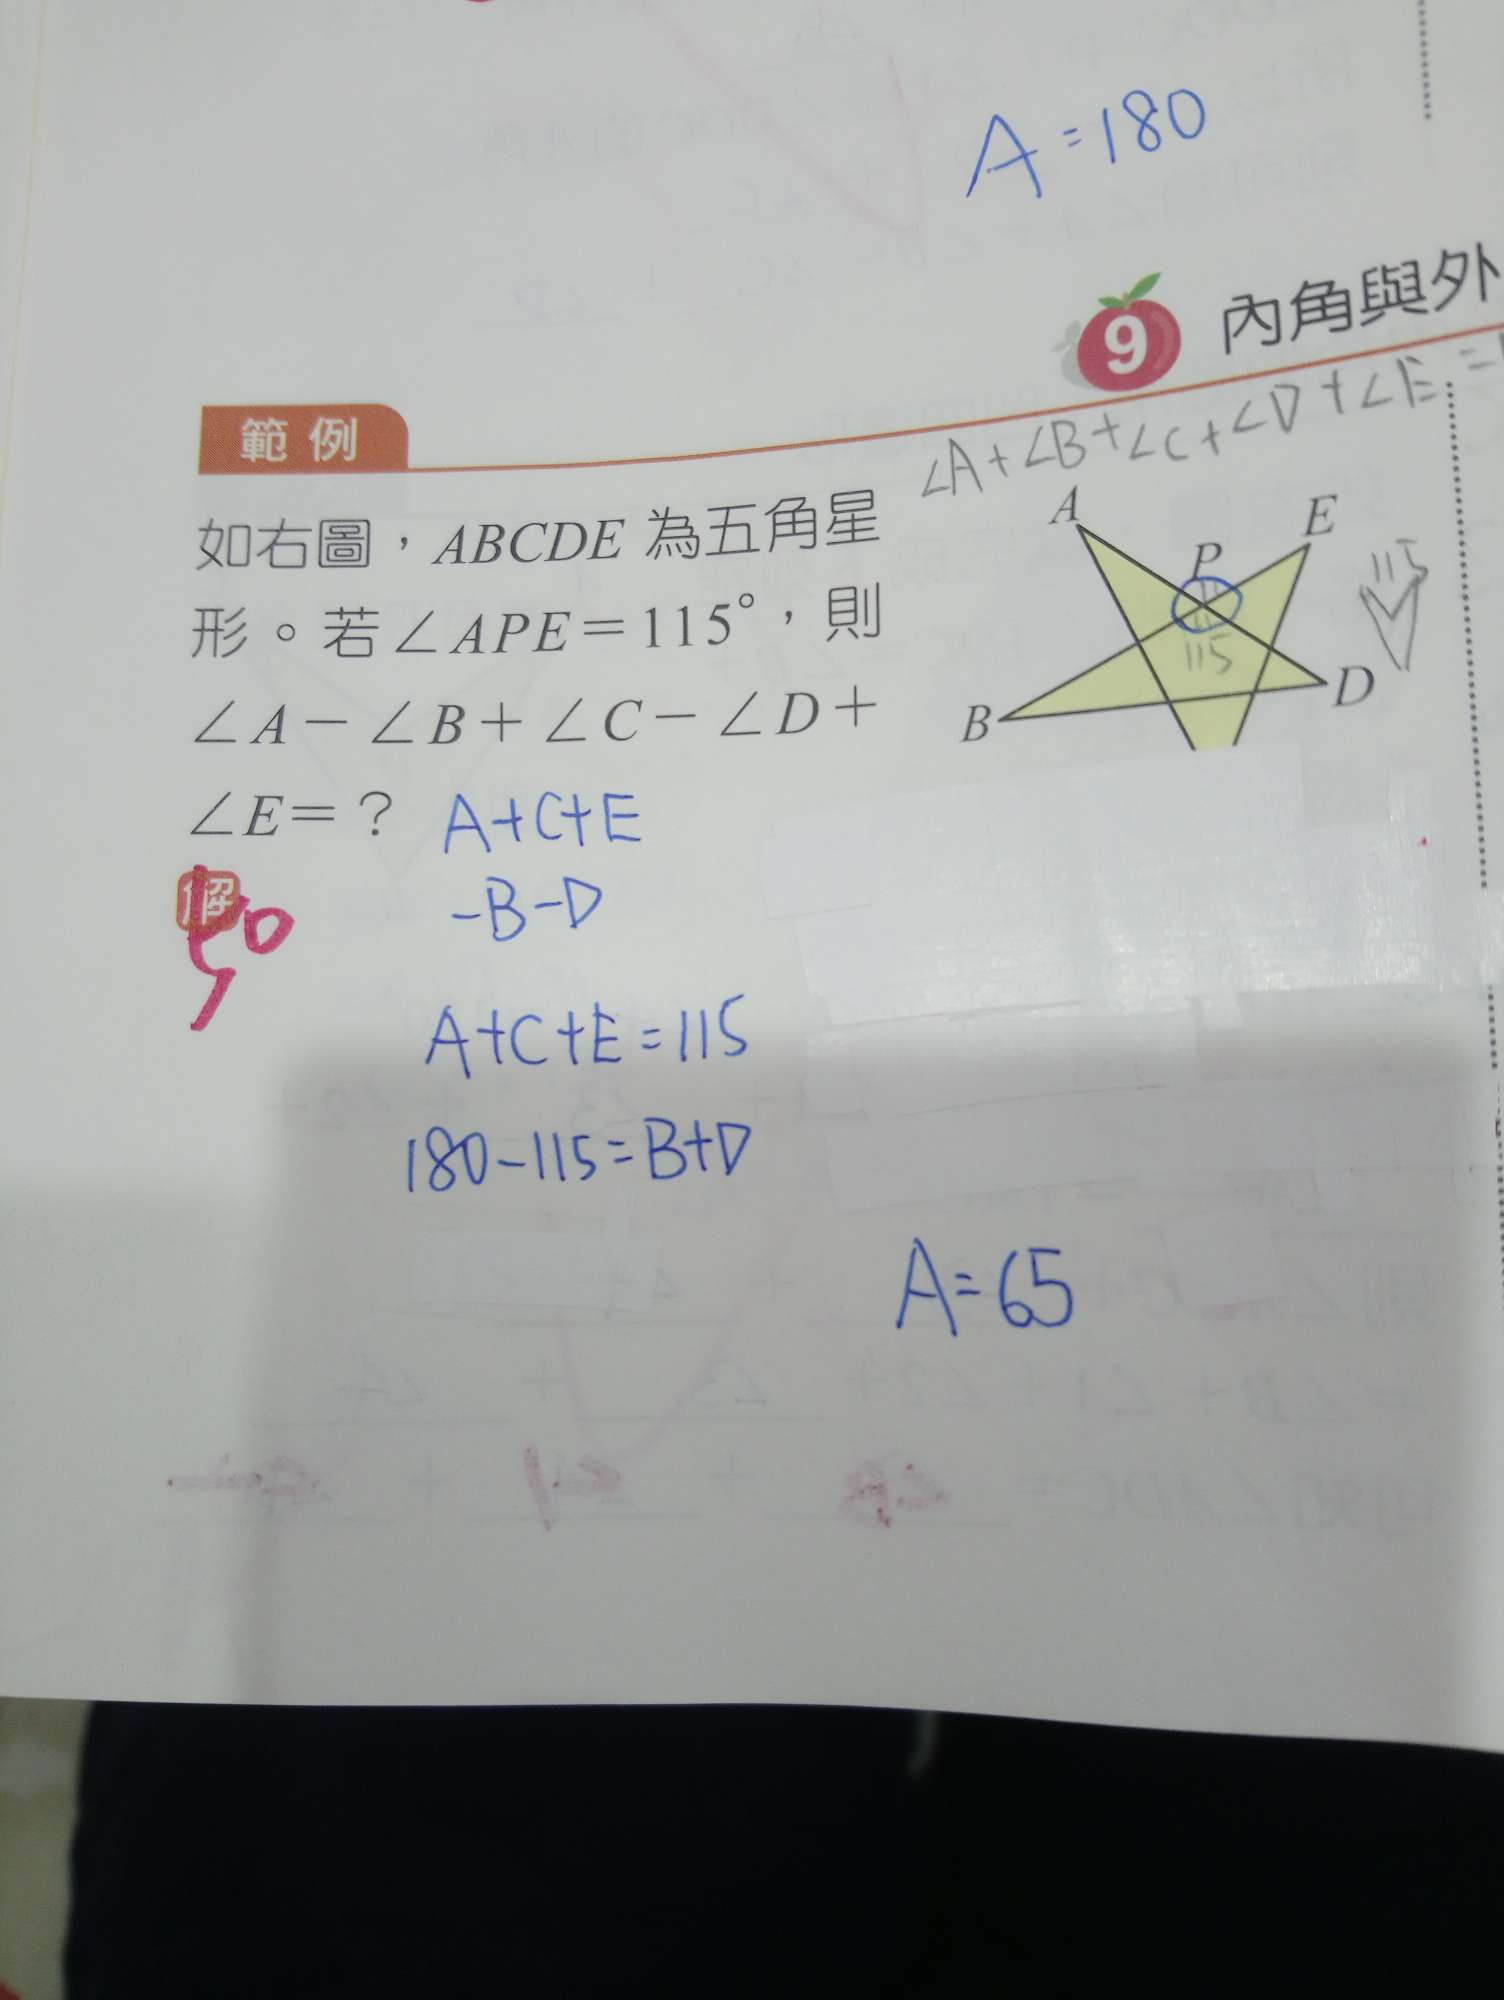 A=180
9 內角與外
範例
∠A+∠B+∠C+∠D+∠E=
如右圖，ABCDE 為五角星
形。若∠APE=115°，則
∠A-∠B+∠C-∠D+
∠E=？
A
E
P
115
115
B
D
A+C+E
-B-D
解
A+C+E=115
180-115=B+D
A=65